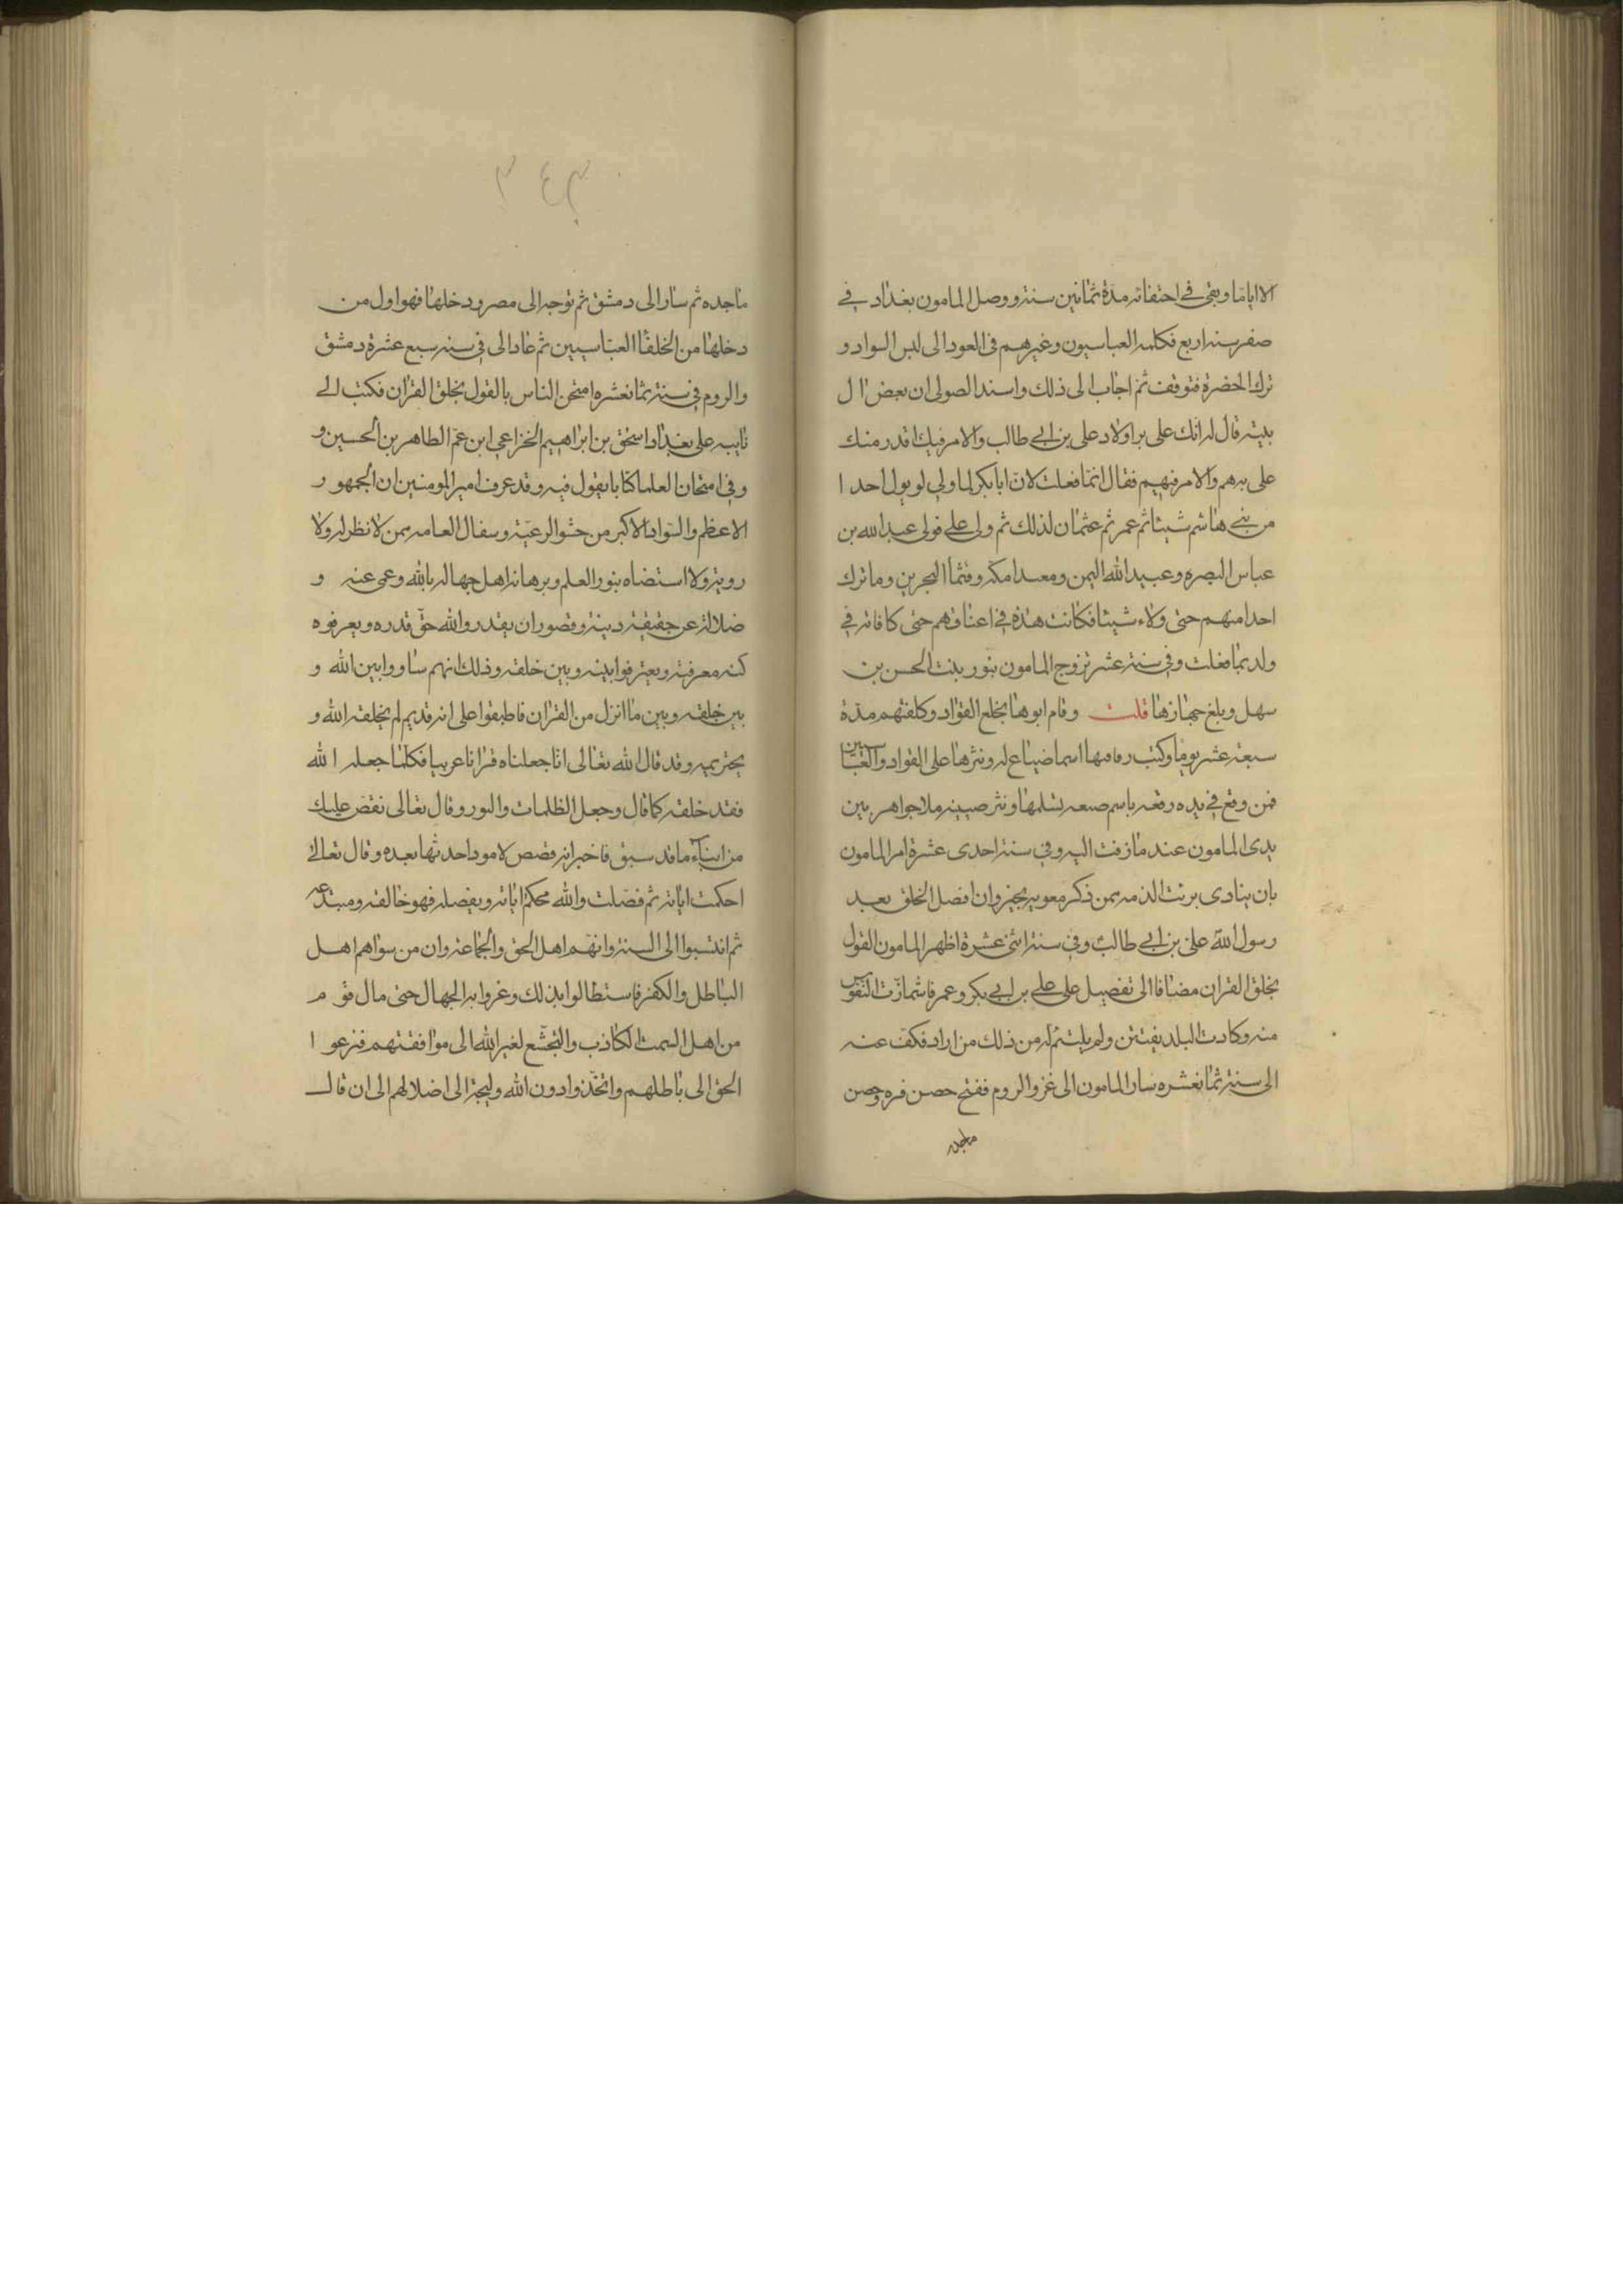 الا اياما وبقي في اختفائه مدة ثمانين سنة ووصل المامون بغداد في
صفر سنة اربع فكلمه العباسيون وغيرهم في العود الى لبس السواد و
ترك الخضرة فتوقف ثم اجاب الى ذلك واسند الصولى ان بعض ال
بيته قال له انك على بر اولاد على بن ابي طالب والامر فيك اقدر منك
على برهم والامر فيهم فقال انما فعلت لان ابا بكر لما ولي لو يول احدا
من بني هاشم شيئا ثم عمر ثم عثمان لذلك ثم ولى علي فولى عبد الله بن
عباس البصره وعبيد الله اليمن ومعبدا مكه وقثما البحرين وما ترك
احدا منهم حتى ولاه شيئا فكانت هذه في اعناقهم حتى كافاته في
ولده بما فعلت وفي سنة عشر تزوج المامون بنور بنت الحسن بن
سهل وبلغ جهازها قلت وقام ابوها بخلع القواد وكلفتهم مدة
سبعة عشر يوما وكتب رقاعها اسما ضياع له ونثرها على القواد والعباسيين
فمن وقع في يده رقعه باسم صيعه تسلمها ونثر صينيه ملا جواهر بين
يدى المامون عند ما زفت اليه وفي سنة احدى عشرة امر المامون
بان ينادى برئت الذمه ممن ذكر معويه بخير وان افضل الخلق بعد
رسول الله على بن ابي طالب وفي سنة اثنى عشرة اظهر المامون القول
بخلق القران مضافا الى تفضيل على علي بر ابي بكر وعمر فاشمازت النفوس
منه وكادت البلد يفتتن ولم يلتئم له من ذلك من اراد فكف عنه
الى سنة ثمانعشره سار المامون الى غزو الروم ففتح حصن قره وحصن
ماجده
٣٤٣
ماجده ثم سار الى دمشق ثم توجه الى مصر ودخلها فهو اول من
دخلها من الخلفا العباسيين ثم عاد الى في سنه سبع عشرة دمشق
والروم في سنة ثمانعشره امتحن الناس بالقول بخلق القران فكتب الي
نايبه على بغداد اسحق بن ابراهيم الخزاعي ابن عم الطاهر بن الحسين و
وفي امتحان العلما كتابا يقول فيه وقد عرف امير المومنين ان الجمهور
الاعظم والسواد الاكبر من حشو الرعية وسفال العامه ممن لا نظر له ولا
روية ولا استضاه بنور العلم وبرهانه اهل جهاله بالله وعمى عنه و
ضلالة عن حقيقة دينه وقصور ان يقدروا الله حق قدره ويعرفوه
كنه معرفته ويعترفوا بينه وبين خلقه وذلك انهم ساووا بين الله و
بين خلقه وبين ما انزل من القران فاطبقوا على انه قديم لم يخلقه الله و
يخترعه وقد قال الله تعالى انا جعلناه قرانا عربيا فكلما جعله الله
فقد خلقه كما قال وجعل الظلمات والنور وقال تعالى نقص عليك
من انباء ما قد سبق فاخبر انه قصص لامور احدثها بعده وقال تعالى
احكمت اياته ثم فصلت والله محكم اياته ويفصله فهو خالقه ومبتدعه
ثم انتسبوا الى السنة وانهم اهل الحق والجماعة وان من سواهم اهل
الباطل والكفر فاستطالوا بذلك وغروا به الجهال حتى مال قوم
من اهل السمت الكاذب والتخشع لغير الله الى موافقتهم فنزعوا
الحق الى باطلهم واتخذوا دون الله وليجة الى اضلالهم الى ان قال